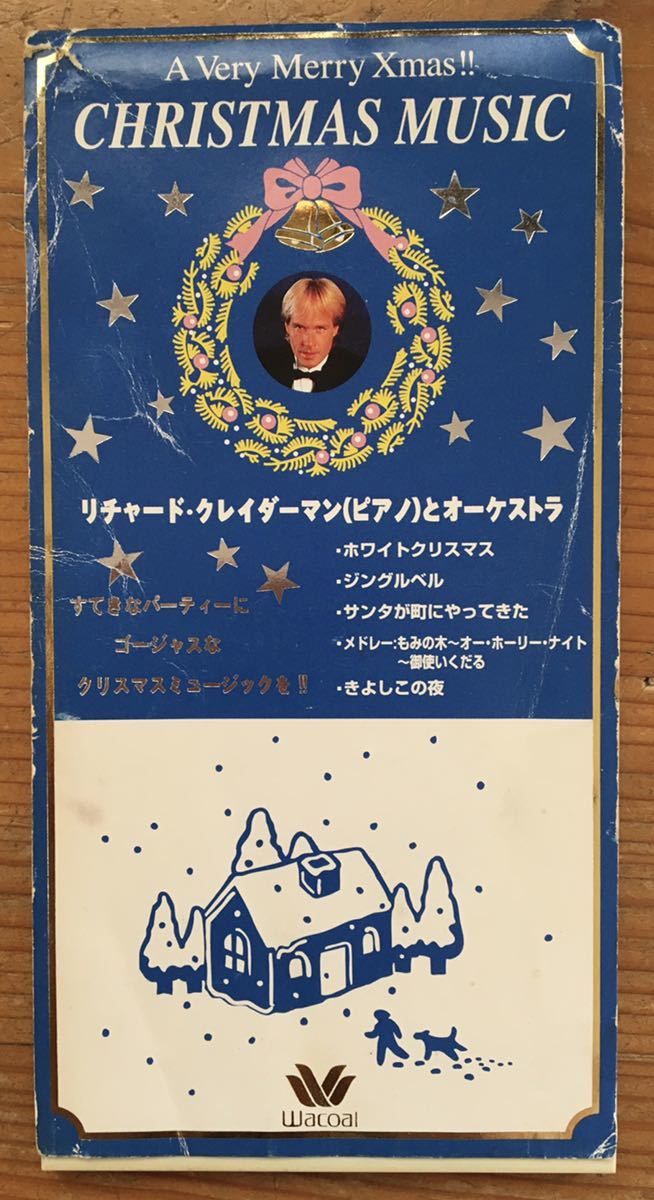 A Very Merry Xmas!!
CHRISTMAS MUSIC
リチャード・クレイダーマン(ピアノ)とオーケストラ
すてきなパーティーに
ゴージャスな
クリスマスミュージックを!!
・ホワイトクリスマス
・ジングルベル
・サンタが町にやってきた
・メドレー:もみの木〜オー・ホーリー・ナイト
〜御使いくだる
・きよしこの夜
Wacoal